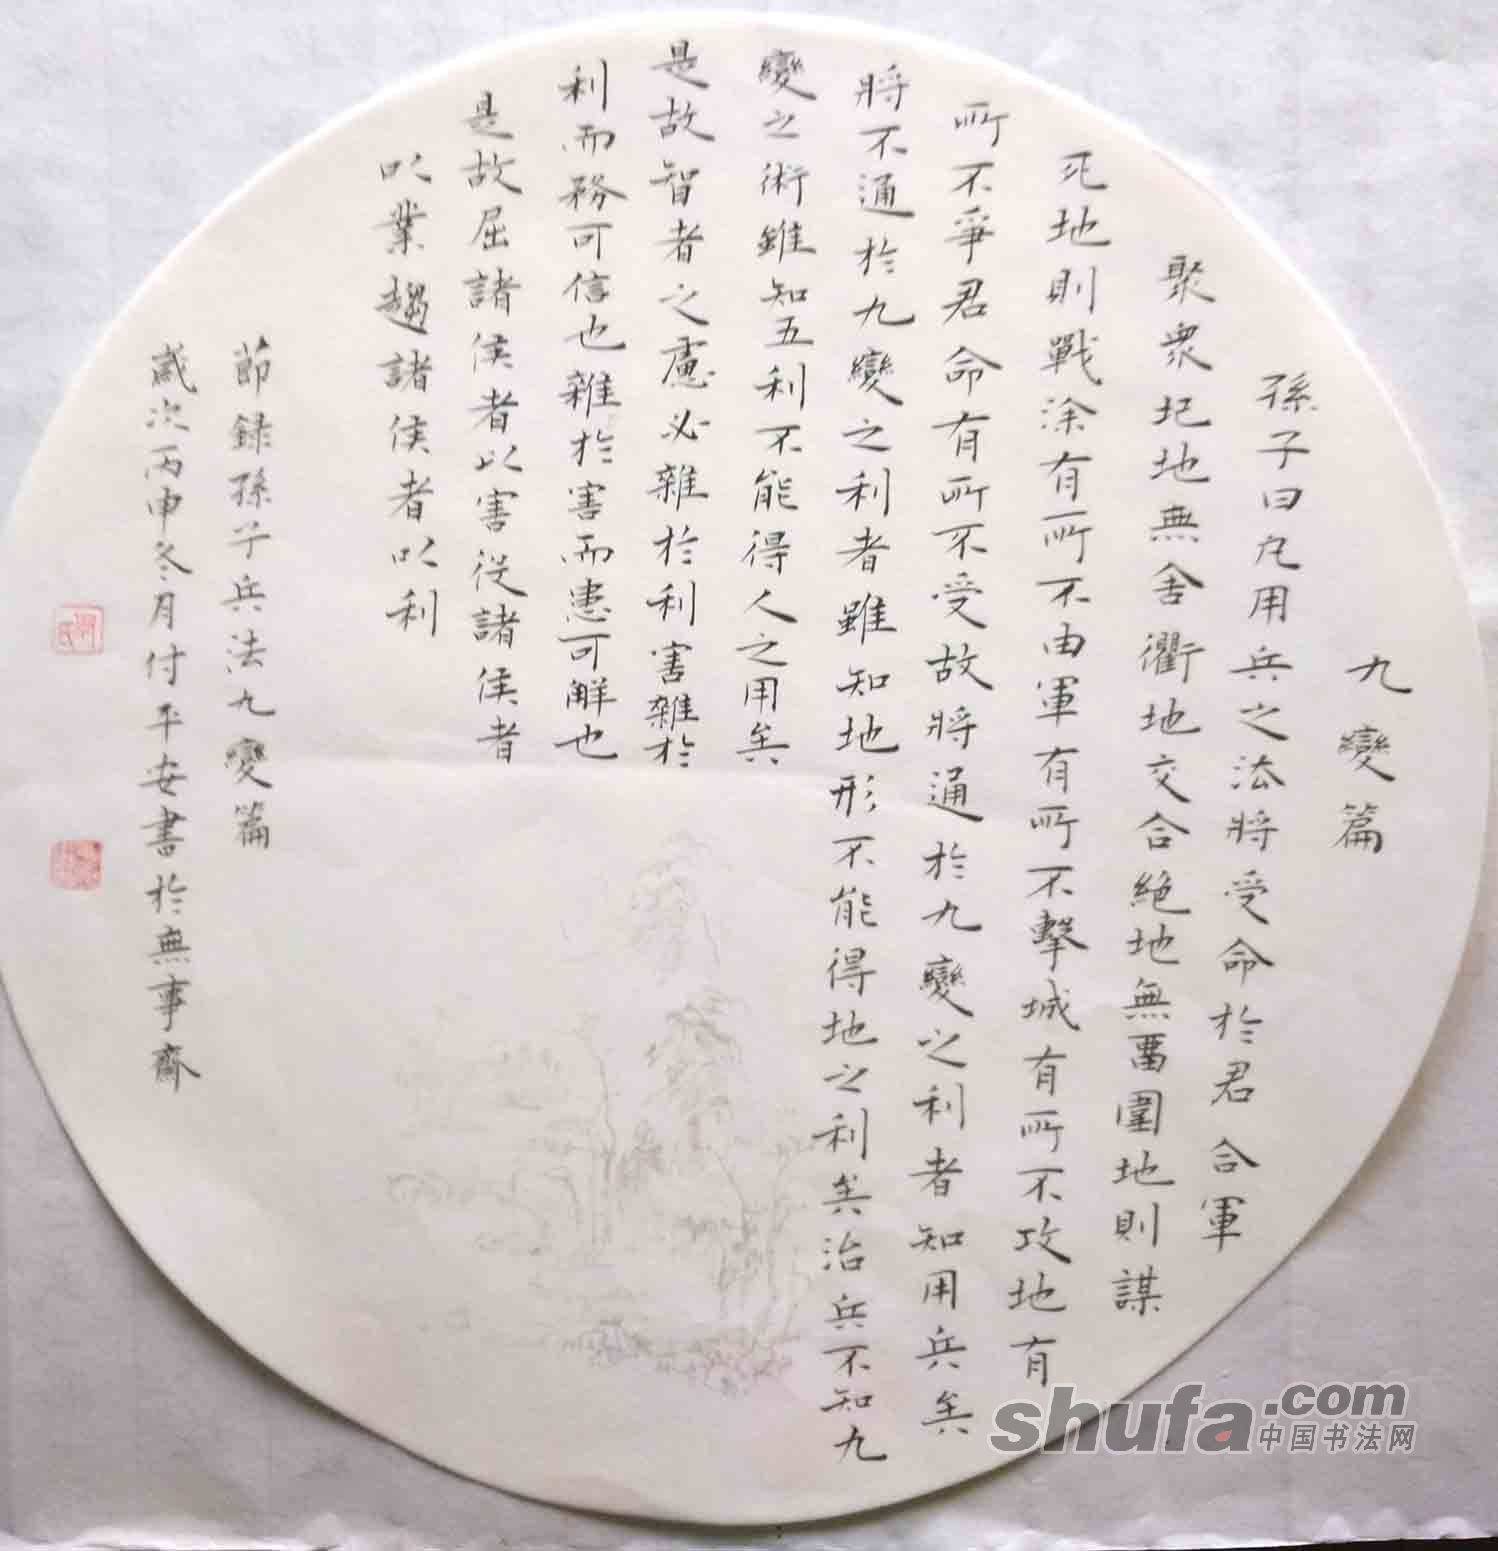 九變篇
孫子曰凡用兵之法將受命於君合軍
聚衆圮地無舍衢地交合絕地無畱圍地則謀
死地則戰涂有所不由軍有所不擊城有所不攻地有
所不爭君命有所不受故將通於九變之利者知用兵矣
將不通於九變之利者雖知地形不能得地之利矣治兵不知九
變之術雖知五利不能得人之用矣
是故智者之慮必雜於利害雜於
利而務可信也雜於害而患可解也
是故屈諸侯者以害役諸侯者
以業趨諸侯者以利
節録孫子兵法九變篇
歲次丙申冬月付平安書於無事齋
shufa.com
中国书法网